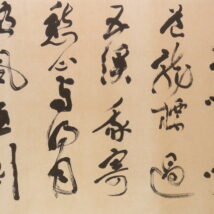 道龍標過
五溪我寄
愁心与明月
風直到